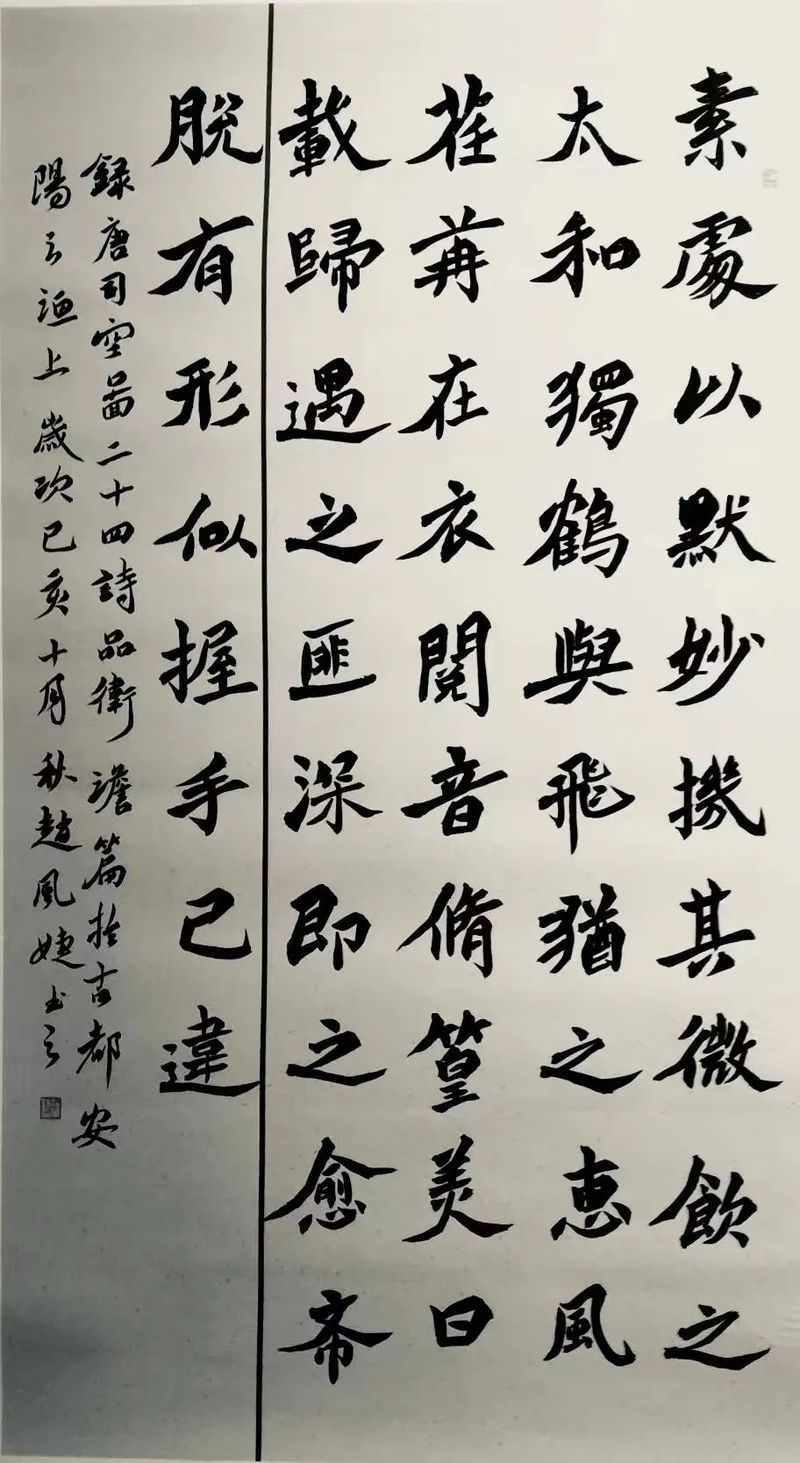 素處以默妙機其微飲之
太和獨鶴與飛猶之惠風
荏苒在衣閱音脩篁美曰
載歸遇之匪深即之愈斋
脫有形似握手已違
錄唐司空啚二十四詩品衝澹篇於古都安
陽之 上歲次己亥十月秋趙風婕书之